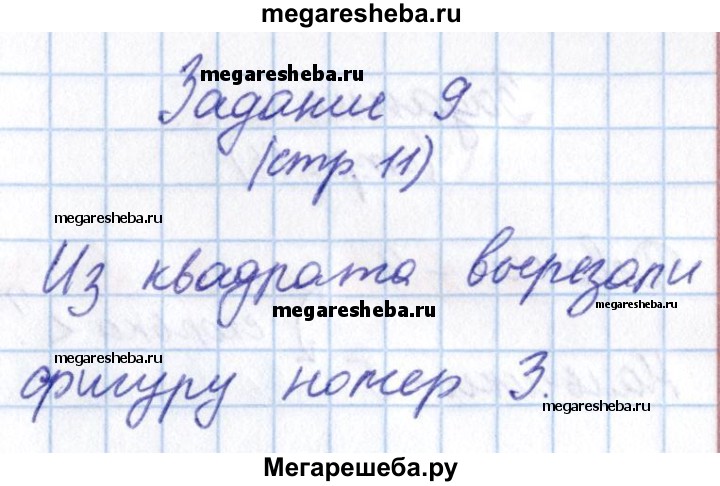 megaresheba.ru
megaresheba.ru
Задание 9
(стр. 11)
megaresheba.ru
Из квадрата вырезали
megaresheba.ru
megaresheba.ru
фигуру номер 3.
megaresheba.ru
Мегарешеба.ру